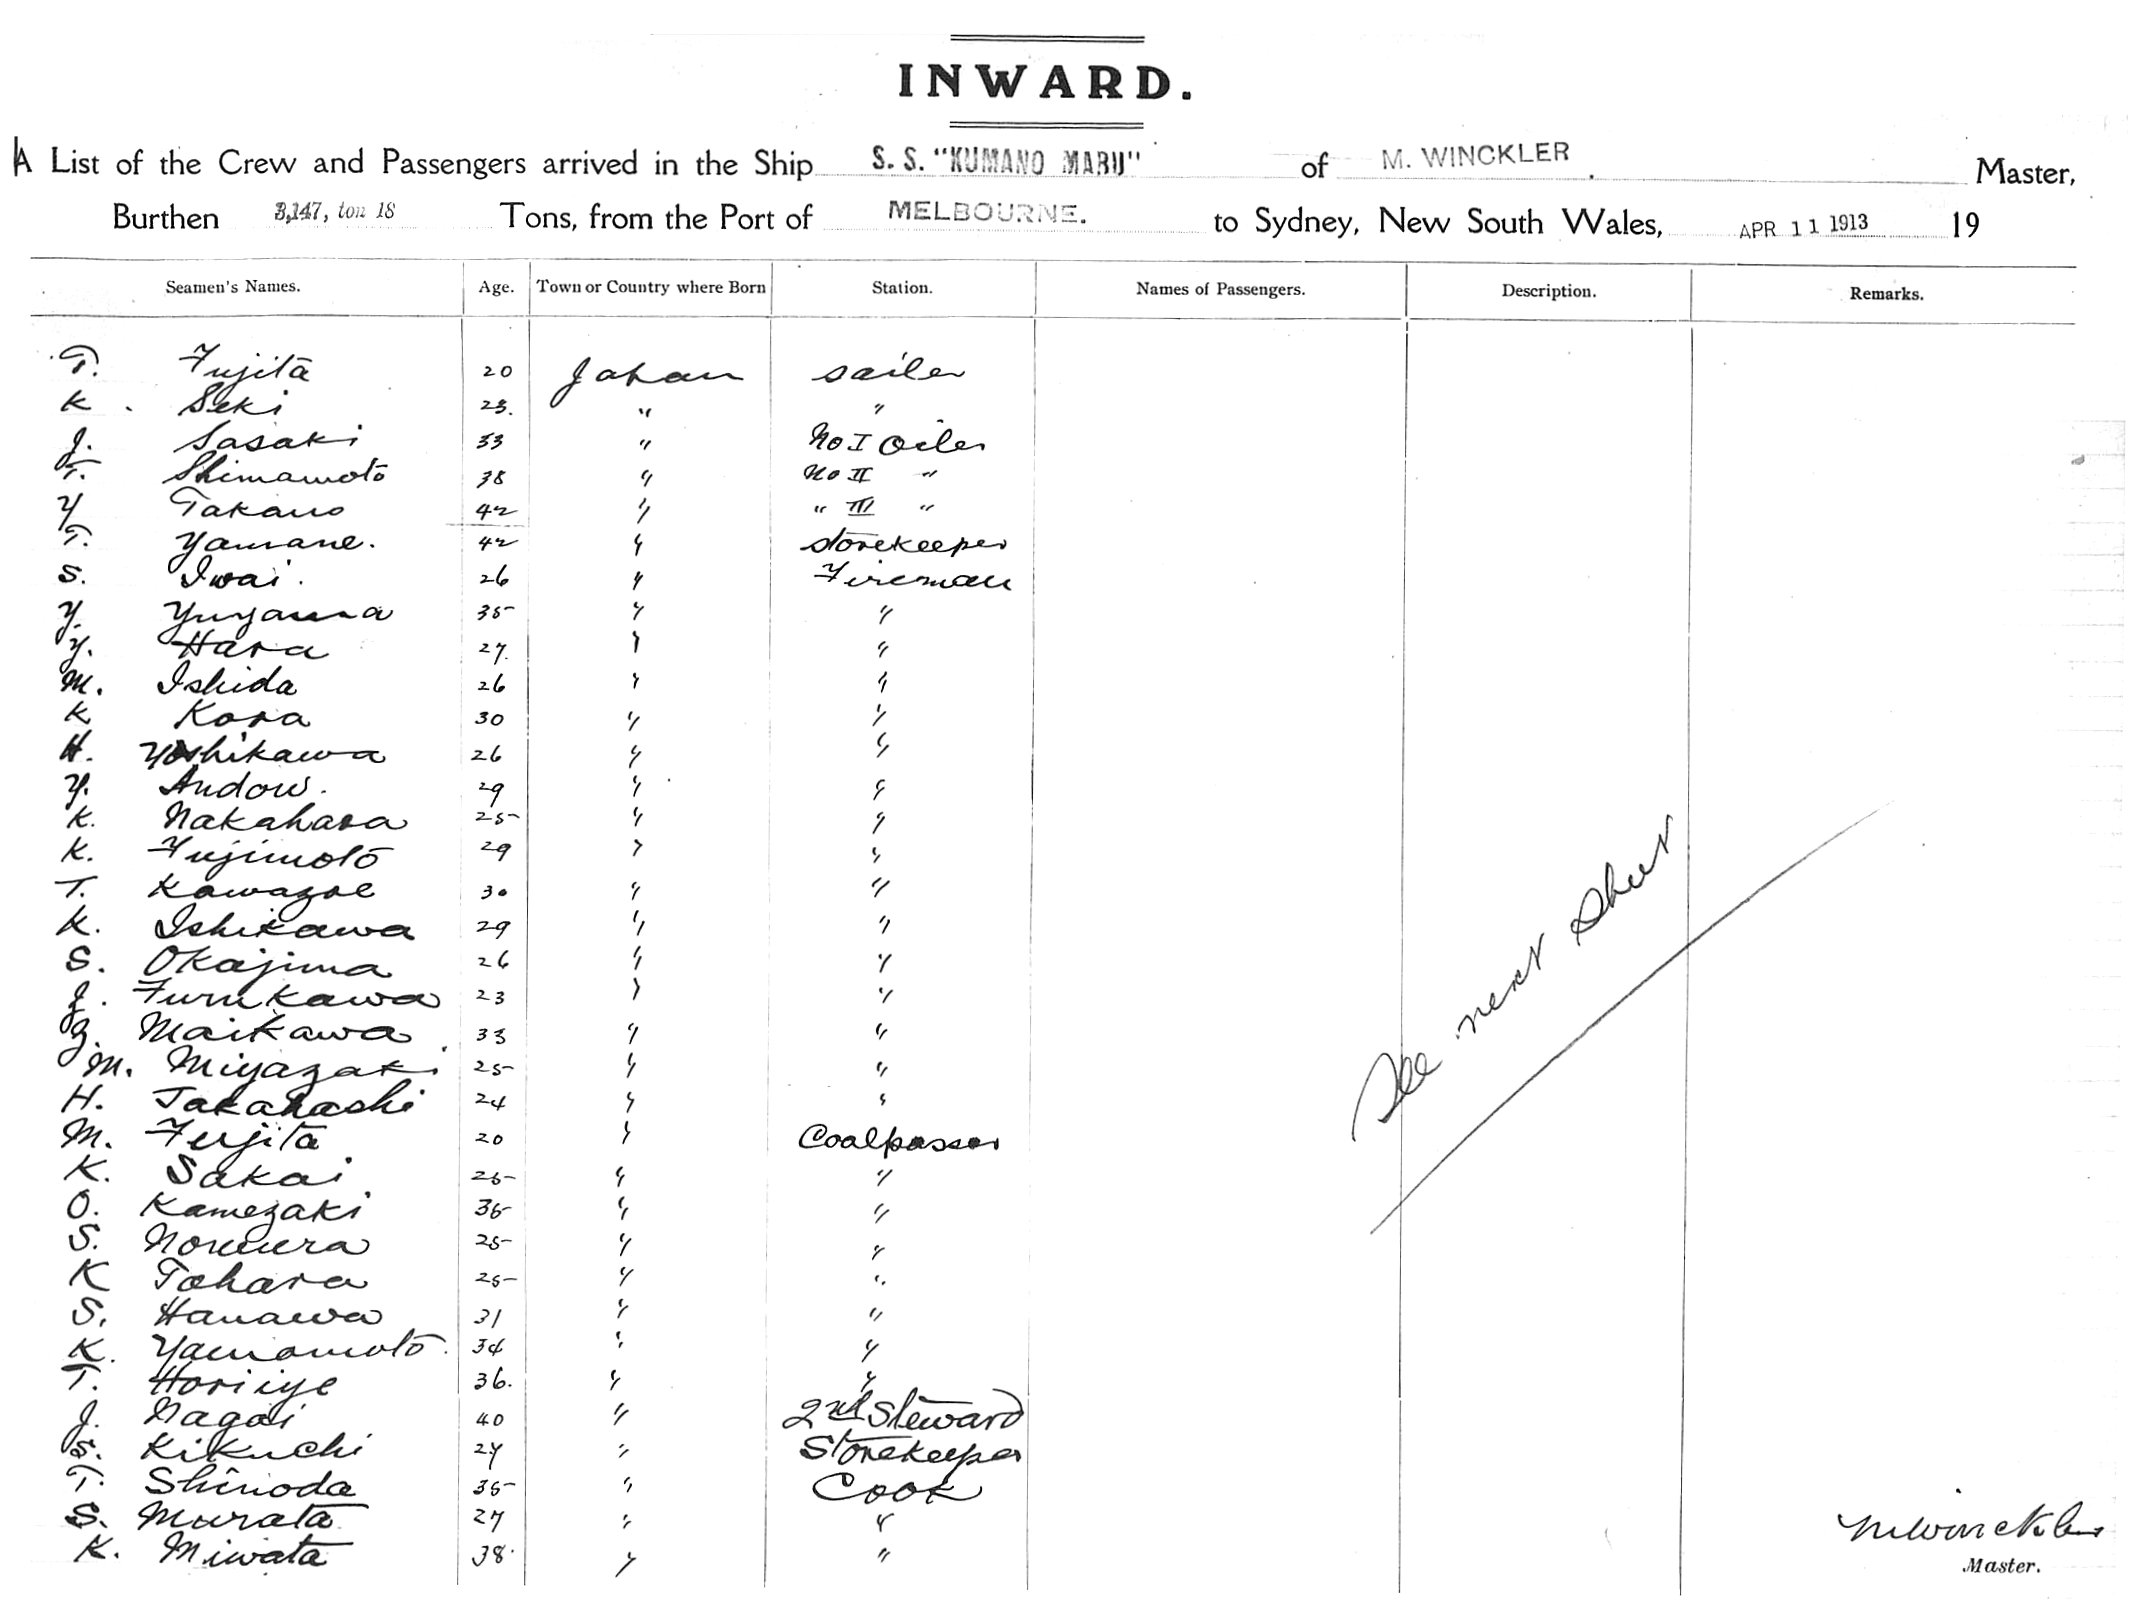 INWARD.
A List of the Crew and Passengers arrived in the Ship S. S. "KUMANO MARU" of M. WINCKLER Master,
Burthen 3,147, ton 18 Tons, from the Port of MELBOURNE. to Sydney, New South Wales, APR 11 1913 19
Seamen's Names. Age. Town or Country where Born Station. Names of Passengers. Description. Remarks.
T. Fujita 20 Japan sailer
K. Seki 23. " "
J. Sasaki 33 " No I Oiler
T. Shimamoto 38 " No II "
Y Takano 42 " " III "
T. Yamane. 42 " storekeeper
S. Iwai. 26 " Fireman
Y. Yuyama 35 " "
Y. Hara 27. " "
M. Ishida 26 " "
K Kora 30 " "
H. Yoshikawa 26 " "
Y. Andow. 29 " "
K. Nakahara 25 " "
K. Fujimoto 29 " "
T. Kawazoe 30 " "
K. Ishikawa 29 " "
S. Okajima 26 " "
J. Furukawa 23 " "
G. Maikawa 33 " "
M. Miyazaki 25 " "
H. Takahashi 24 " "
M. Fujita 20 " Coalpasser
K. Sakai 25 " "
O. Kamezaki 35 " "
S. Nomura 25 " "
K Tahara 25 " "
S. Hanawa 31 " "
K. Yamamoto. 34 " "
T. Horiiye 36. " "
J. Nagai 40 " 2nd Steward
S. Kikuchi 27 " Storekeeper
T. Shinoda 35 " Cook
S. Murata 27 " "
K. Miwata 38 " "
See next Sheet
M Winckler
Master.